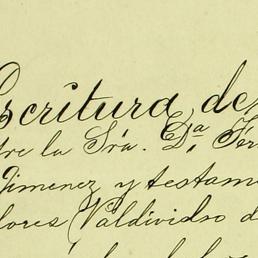 Escritura de
tre la Sra. Da. Fer
Jimenez y testam
lores Valdividso d